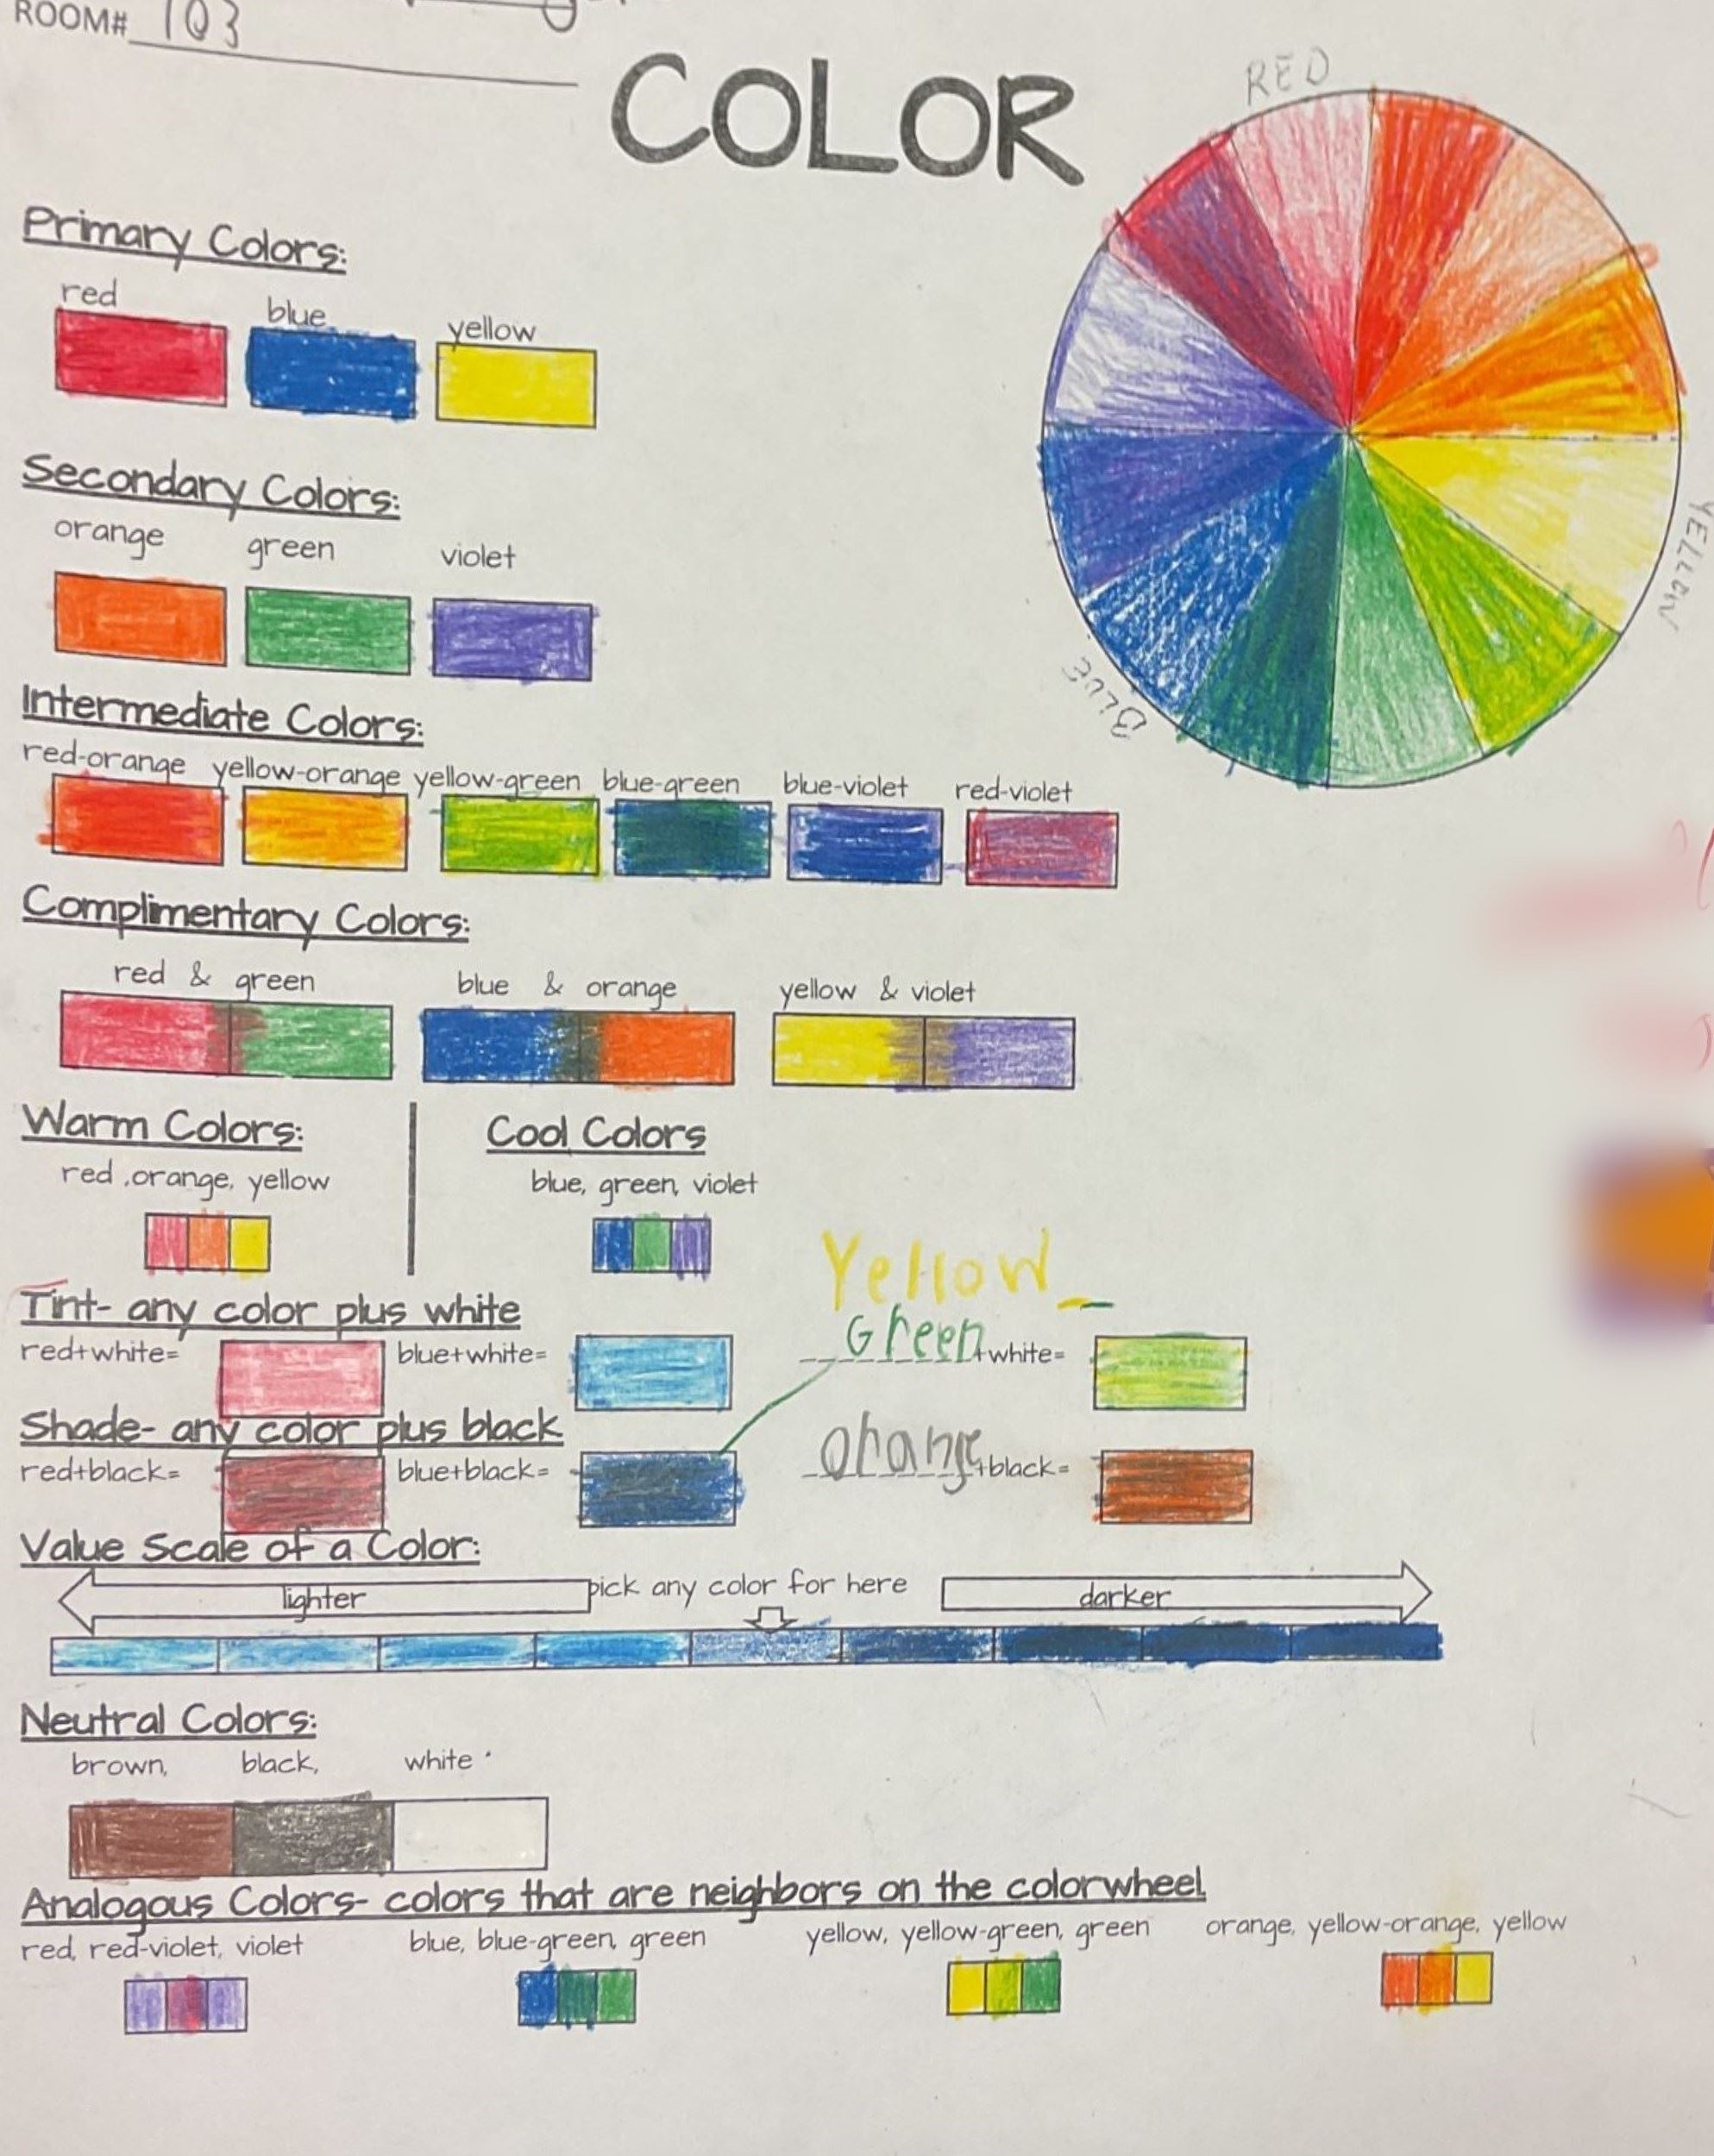 ROOM# 103
COLOR
RED
YELLOW
BLUE
Primary Colors:
red blue yellow
Secondary Colors:
orange green violet
Intermediate Colors:
red-orange yellow-orange yellow-green blue-green blue-violet red-violet
Complimentary Colors:
red & green blue & orange yellow & violet
Warm Colors: Cool Colors
red ,orange, yellow blue, green, violet
Yellow-
Tint- any color plus white
red+white= blue+white= Green+white=
Shade- any color plus black
red+black= blue+black= orange+black=
Value Scale of a Color:
lighter pick any color for here darker
Neutral Colors:
brown, black, white
Analogous Colors- colors that are neighbors on the colorwheel
red, red-violet, violet blue, blue-green, green yellow, yellow-green, green orange, yellow-orange, yellow